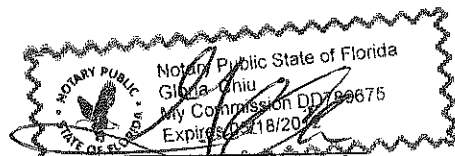 NOTARY PUBLIC
STATE OF FLORIDA
Notary Public State of Florida
Gloria Chiu
My Commission
Expires